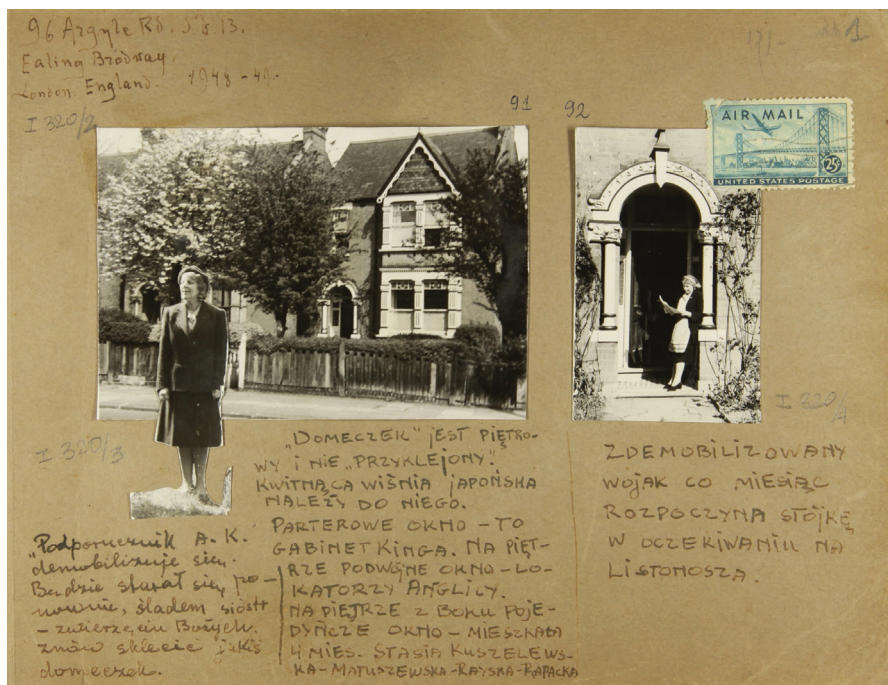 96 Argyle Rd. S.B. 13.
Ealing Brodway.
London England. 1948-49.
1
I 320/2
91
92
AIR MAIL
25¢
UNITED STATES POSTAGE
I 320/3
I 320/4
"Podporucznik A. K.
demobilizuje się.
Będzie starał się po-
nownie, śladem sióstr
- zwierzęciu Bożych.
znów sklecić jakiś
domeczek.
„DOMECZEK" JEST PIĘTRO-
WY I NIE „PRZYKLEJONY".
KWITNĄCA WIŚNIA JAPOŃSKA
NALEŻY DO NIEGO.
PARTEROWE OKNO – TO
GABINET KINGA. NA PIĘT-
RZE PODWÓJNE OKNO – LO-
KATORZY ANGLICY.
NA PIĘTRZE Z BOKU POJE-
DYŃCZE OKNO – MIESZKAŁA
4 MIES. STASIA KUSZELEWS-
KA-MATUSZEWSKA-RAYSKA-RAPACKA
ZDEMOBILIZOWANY
WOJAK CO MIESIĄC
ROZPOCZYNA STÓJKĘ
W OCZEKIWANIU NA
LISTONOSZA.